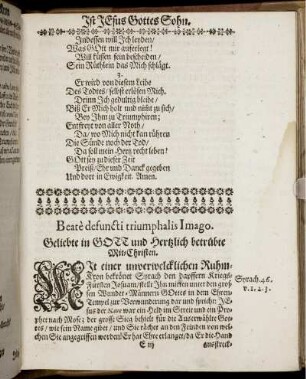 Ist JEsus Gottes Sohn.
Indessen will Ich leyden/
Was GOtt mir auferleget!
Will küssen fein bescheiden/
Sein Rüthlein das Mich schlägt.
3.
Er wird von diesem Leibe
Des Todtes/ selbst erlösen Mich.
Denn Ich gedultig bleibe/
Biß Er Mich holt und nimt zu sich/
Bey Ihm zu Triumphieren;
Entfreyt von aller Noth/
Da/ wo Mich nicht kan rühren
Die Sünde noch der Tod/
Da soll mein Hertz recht leben!
GOtt sey zu dieser Zeit
Preiß/ Ehr und Danck gegeben
Und dort in Ewigkeit. Amen.
Beatè defuncti triumphalis Imago.
Geliebte in GOTT und Hertzlich betrübte
Mit-Christen.
MIt einer unverwelcklichen Ruhm-
Kron bekrönet Syrach den dapffern Kriegs-
Fürsten Josuam, stellt Ihn mitten unter den gros-
sen Wunder-Männern GOttes in dem Ehren-
Tempel zur Verwunderung dar und spricht: JE-
sus der Nave war ein Held im Streit und ein Pro-
phet nach Mose; der grosse Sieg behielt für die Auserwählte Got-
tes/ wie sein Name gibet/ und Sie rächet an den Feinden von wel-
chen Sie angegriffen worden; Er hat Ehre erlanget/ da Er die Hand
Syrach. 46.
v. 1. 2. 3.
E iij
ausstreck-